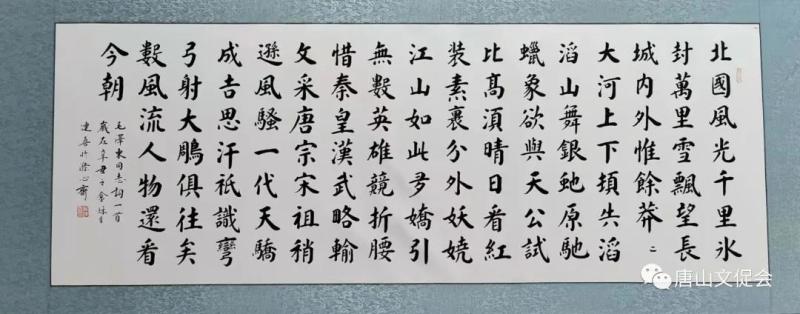 北國風光千里冰
封萬里雪飄望長
城内外惟餘莽〻
大河上下頓失滔
滔山舞銀虵原馳
蠟象欲與天公試
比高須晴日看紅
裝素裹分外妖嬈
江山如此多嬌引
無數英雄競折腰
惜秦皇漢武略輸
文采唐宗宋祖稍
遜風騷一代天驕
成吉思汗祇識彎
弓射大雕俱往矣
數風流人物還看
今朝
毛澤東同志詞一首
歲在辛丑
唐山文促会